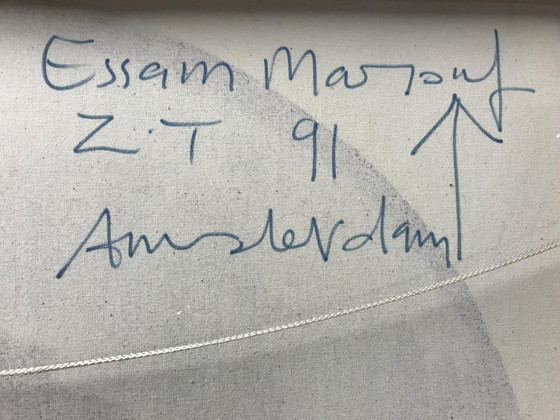 Essam Marouf
Z.T 91
Amsterdam